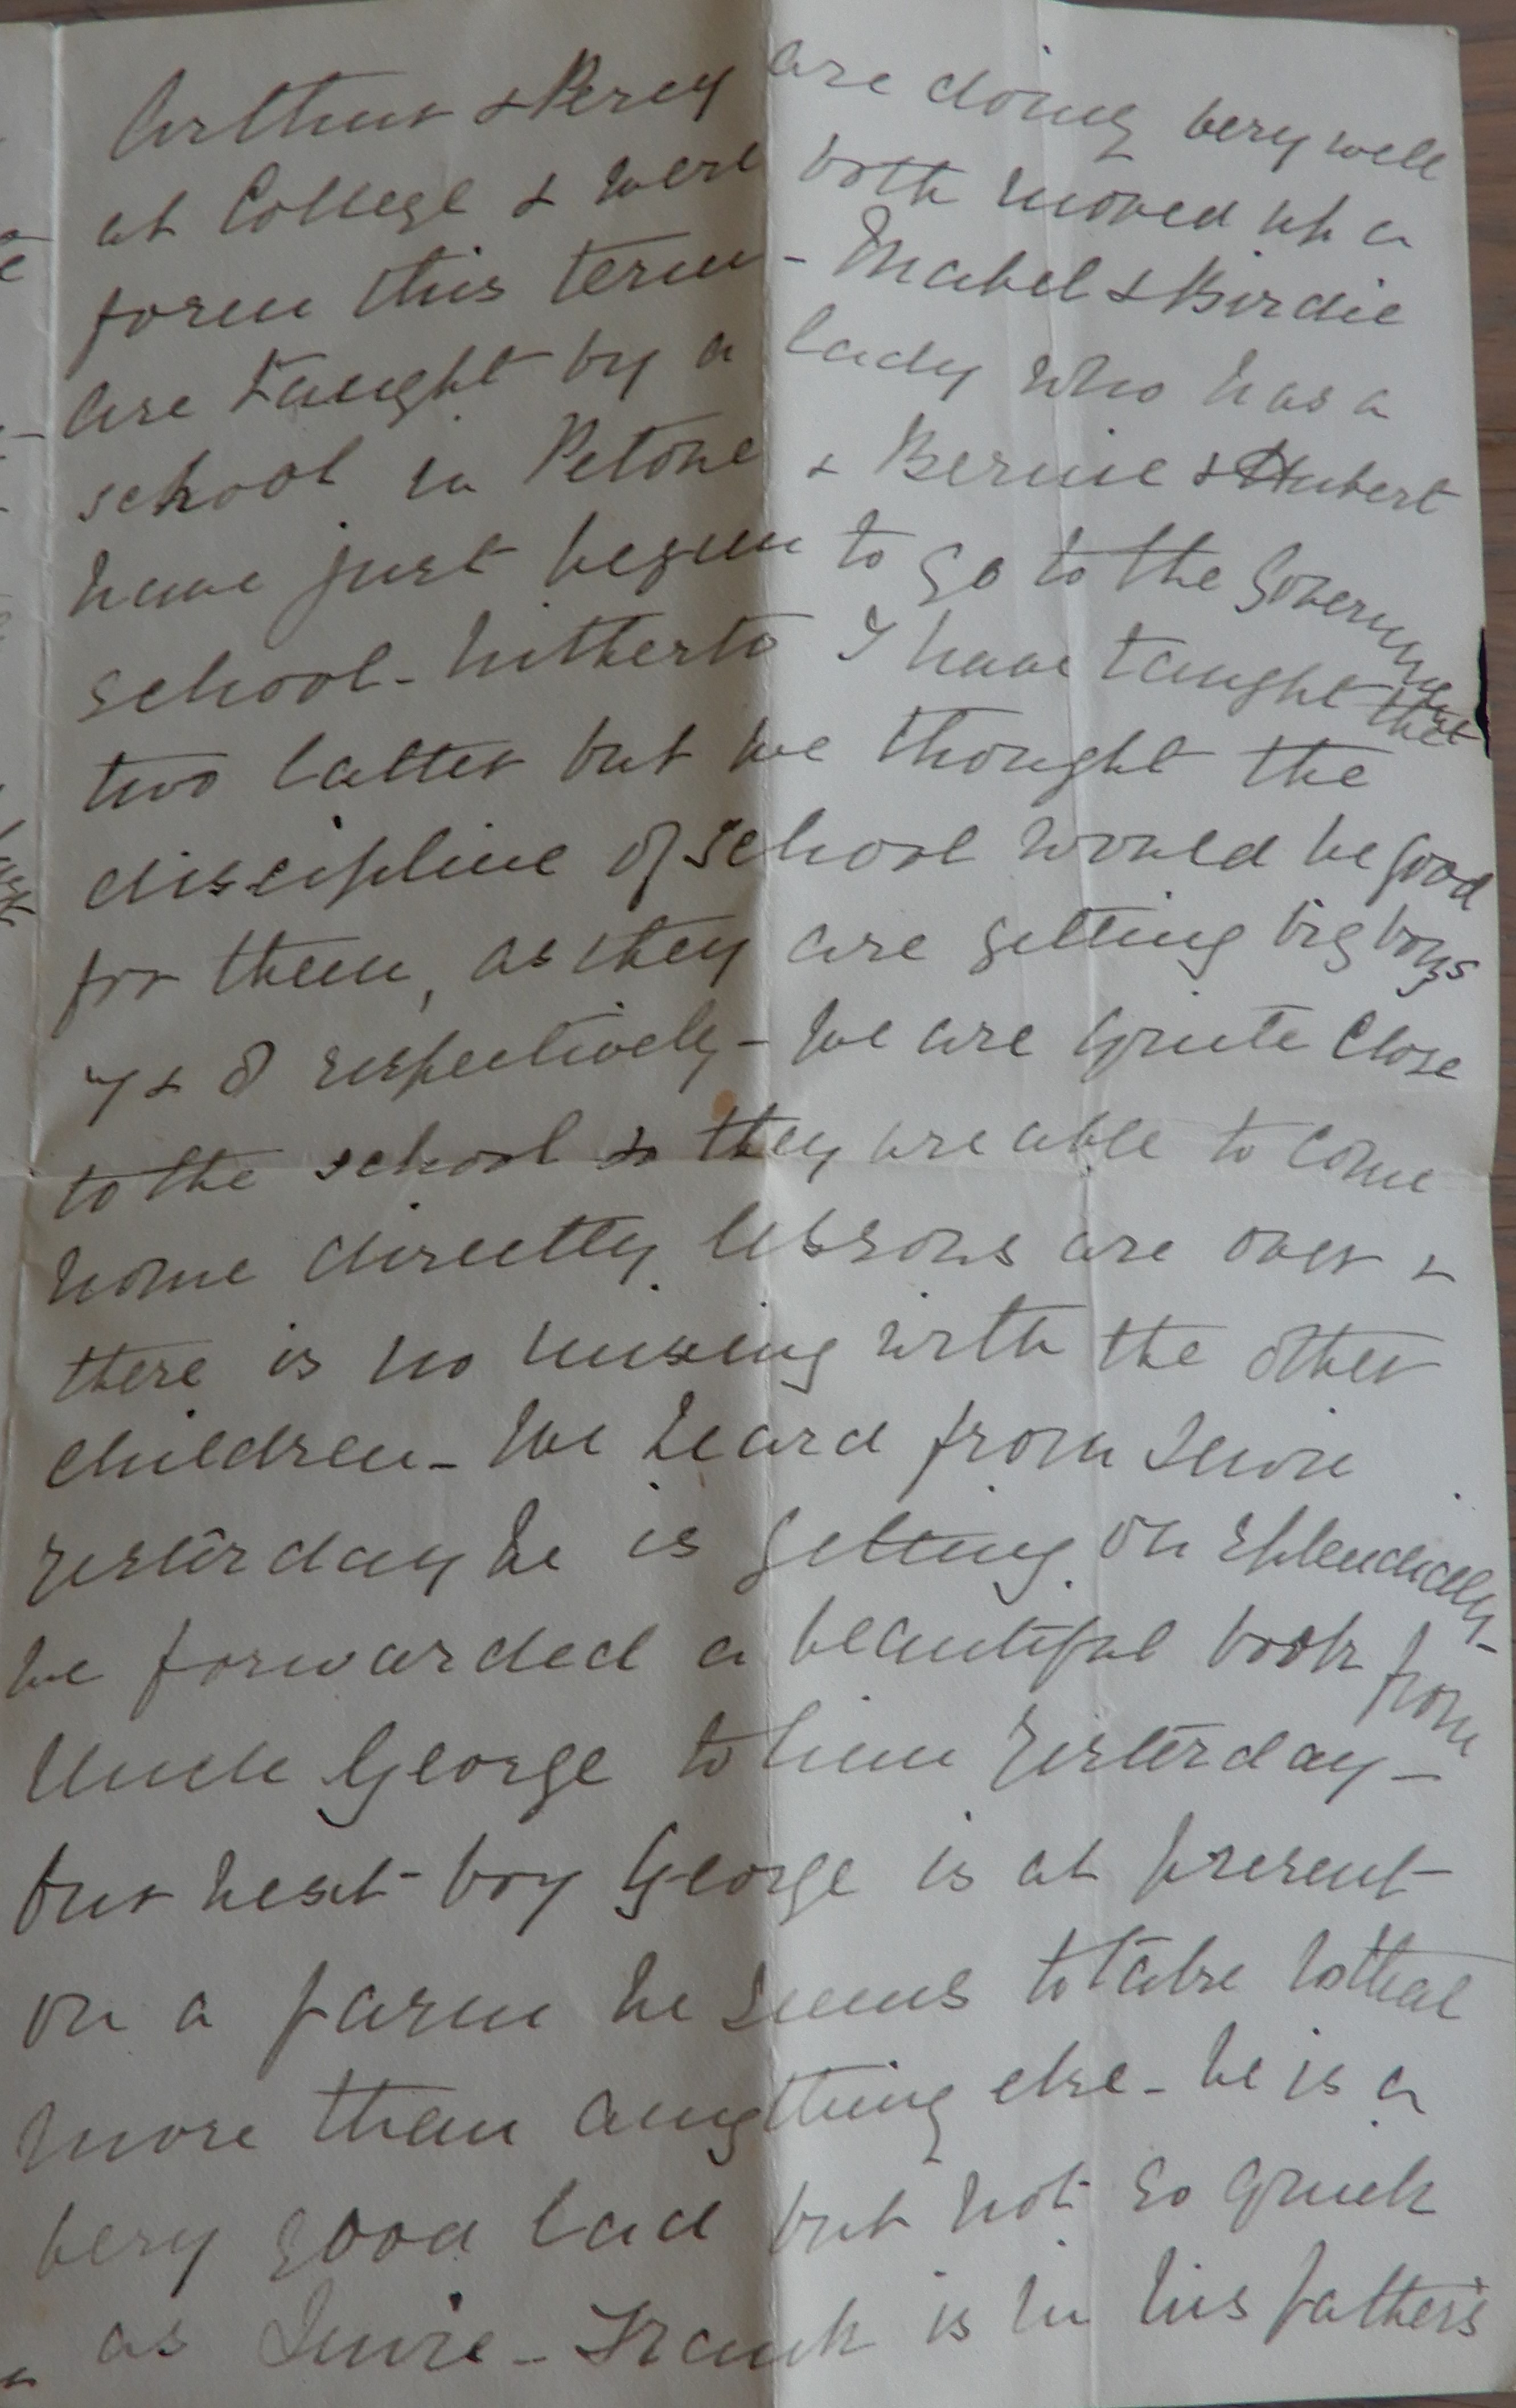 Arthur & Percy are doing very well
at College & were both moved up a
form this term - Mabel & Birdie
are taught by a lady who has a
school in Petone & Bernie & Hubert
have just begun to go to the Government
school - hitherto I have taught the
two latter but we thought the
discipline of school would be good
for them, as they are getting big boys
7 & 8 respectively - We are quite close
to the school so they are able to come
home directly lessons are over &
there is no mixing with the other
children - We heard from
yesterday he is getting on splendidly -
we forwarded a beautiful book from
Uncle George to him yesterday -
Our next boy George is at present
on a farm he seems to take to that
more than anything else - he is a
very good lad but not so quick
as - Frank is in his father's